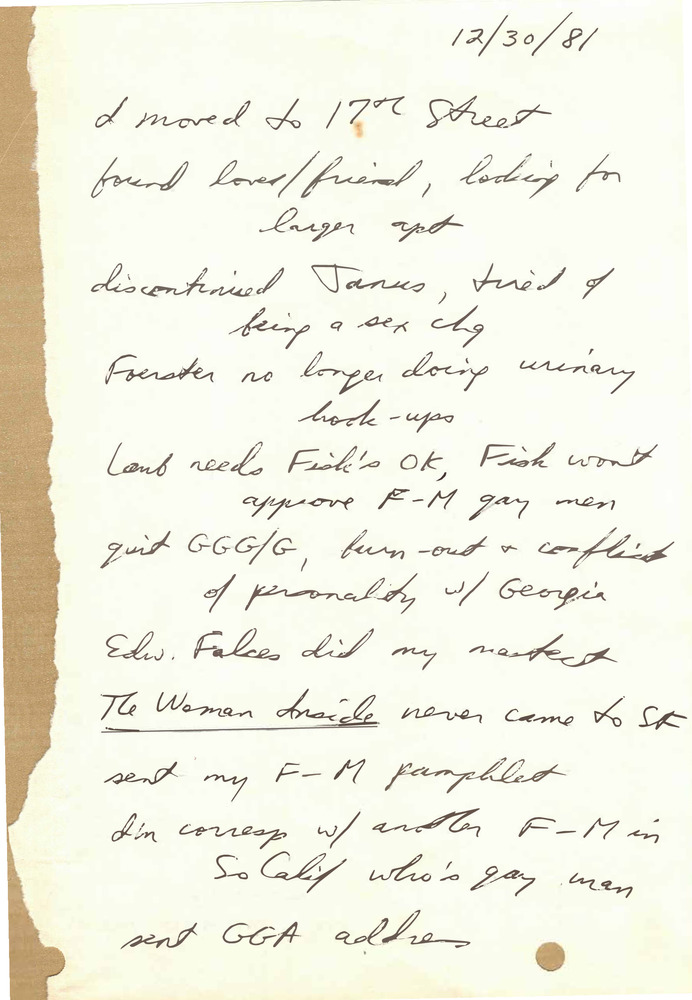 12/30/81
I moved to 17th Street
found lover/friend, looking for
larger apt
discontinued Janus, tired of
being a sex chg
Foerster no longer doing urinary
hook-ups
Laub needs Fisk's OK, Fisk won't
approve F-M gay men
quit GGG/G, burn-out + conflict
of personality w/ Georgia
Edw. Falces did my mastect
The Woman Inside never came to SF
sent my F-M pamphlet
I'm corresp w/ another F-M in
So Calif who's gay man
sent GGA address